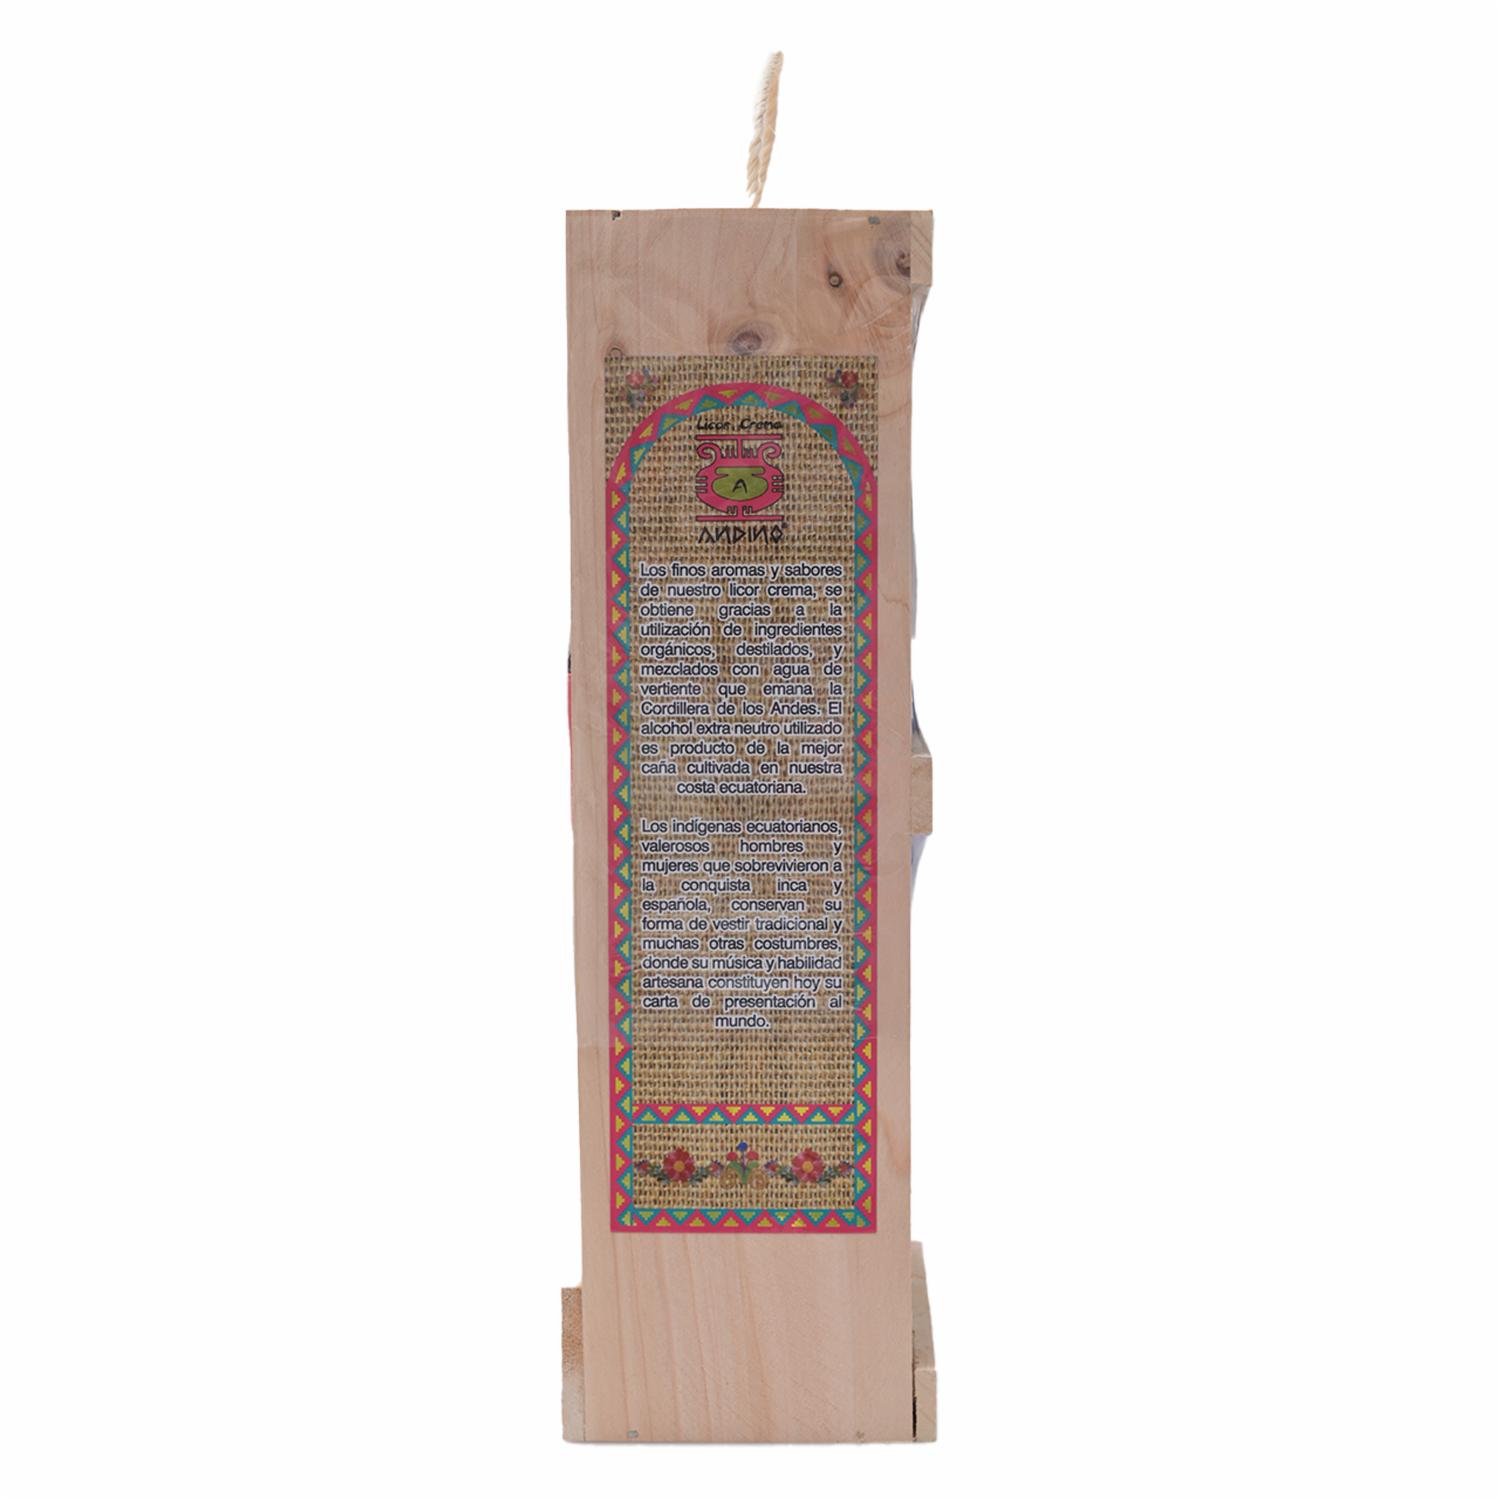 Licor Crema
A
ANDINO
Los finos aromas y sabores
de nuestro licor crema, se
obtiene gracias a la
utilización de ingredientes
orgánicos, destilados, y
mezclados con agua de
vertiente que emana la
Cordillera de los Andes. El
alcohol extra neutro utilizado
es producto de la mejor
caña cultivada en nuestra
costa ecuatoriana.
Los indígenas ecuatorianos,
valerosos hombres y
mujeres que sobrevivieron a
la conquista inca y
española, conservan su
forma de vestir tradicional y
muchas otras costumbres,
donde su música y habilidad
artesana constituyen hoy su
carta de presentación al
mundo.